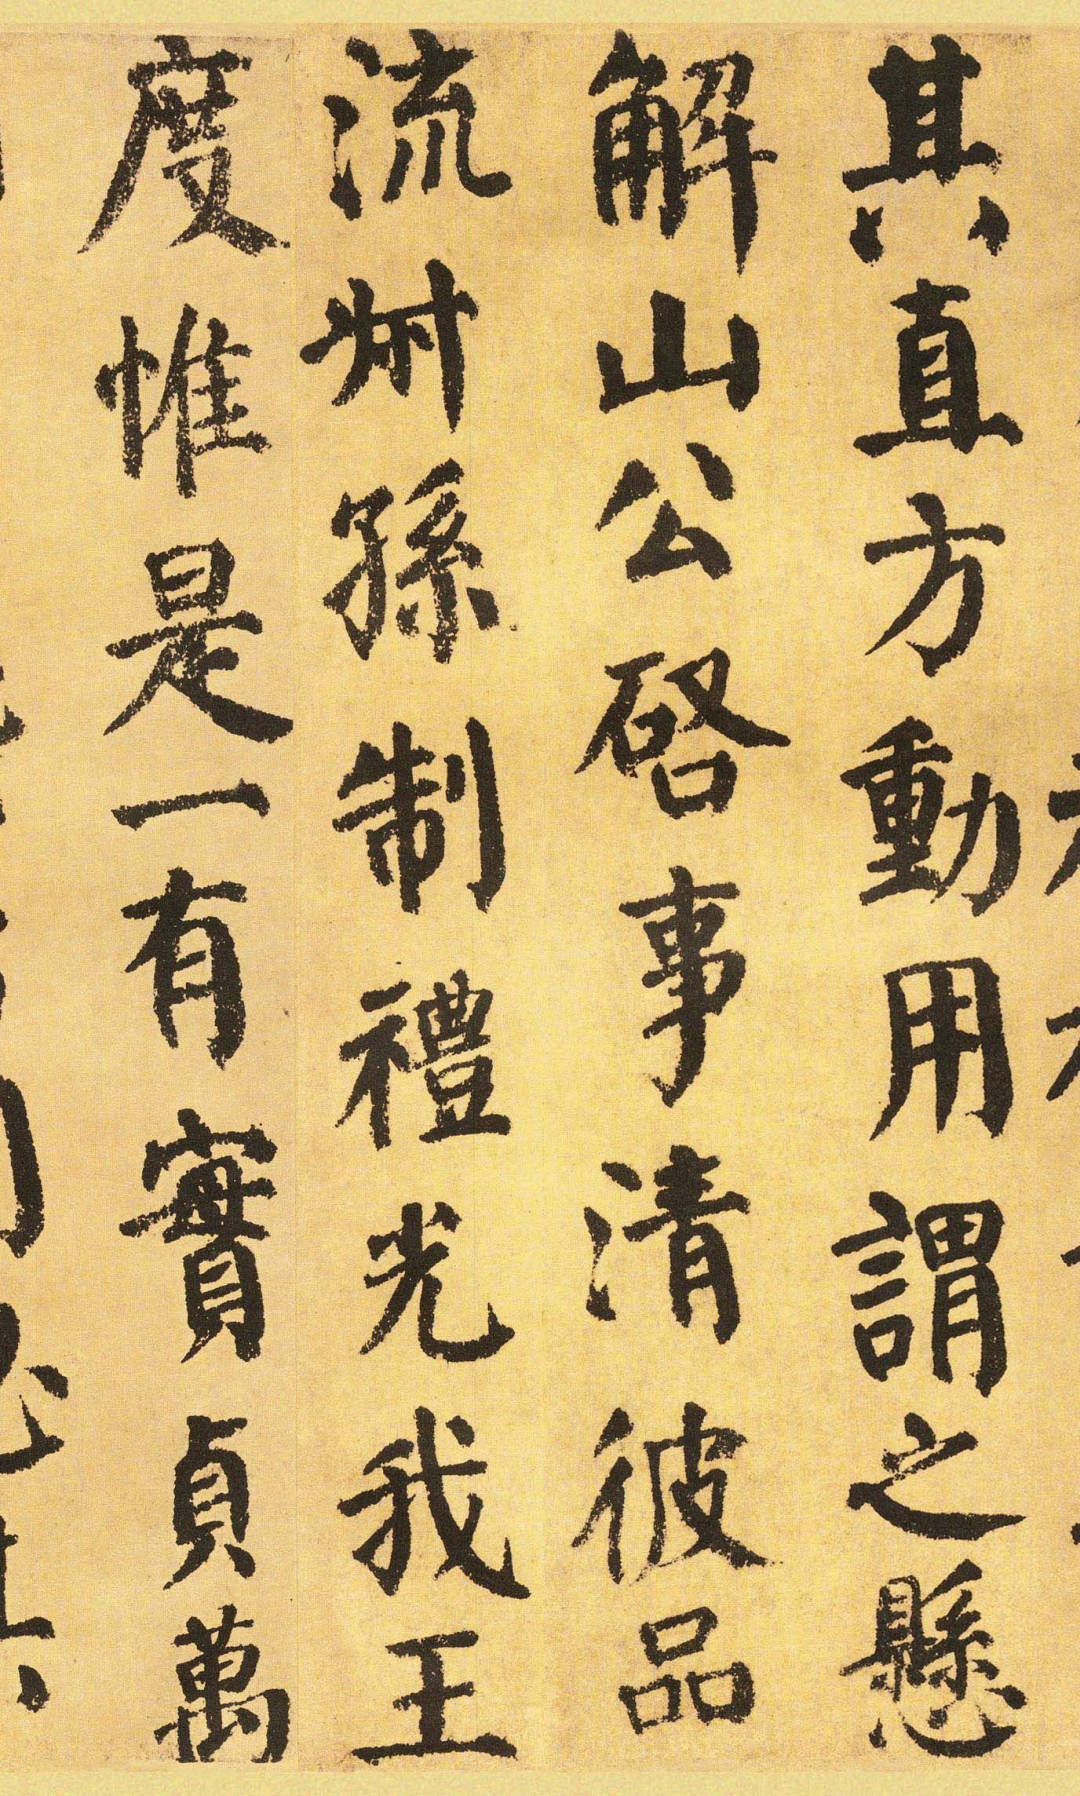 其直方動用謂之懸
解山公啓事清彼品
流叔孫制禮光我王
度惟是一有實貞萬